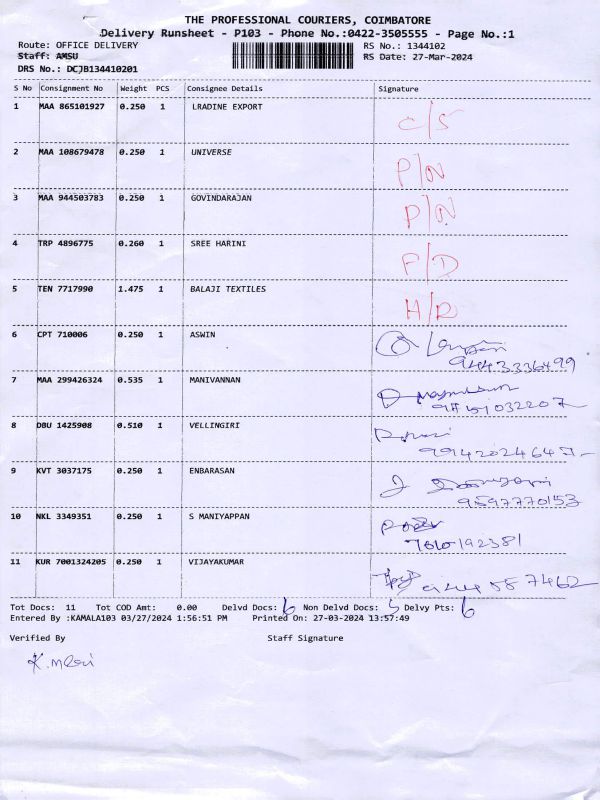 THE PROFESSIONAL COURIERS, COIMBATORE
Delivery Runsheet - P103 - Phone No.:0422-3505555 - Page No.:1
Route: OFFICE DELIVERY RS No.: 1344102
Staff: AMSU RS Date: 27-Mar-2024
DRS No.: DCJB134410201
S No Consignment No Weight PCS Consignee Details Signature
1 MAA 865101927 0.250 1 LRADINE EXPORT C/S
2 MAA 108679478 0.250 1 UNIVERSE P/N
3 MAA 944503783 0.250 1 GOVINDARAJAN P/N
4 TRP 4896775 0.260 1 SREE HARINI P/D
5 TEN 7717990 1.475 1 BALAJI TEXTILES H/R
6 CPT 710006 0.250 1 ASWIN
9443336499
7 MAA 299426324 0.535 1 MANIVANNAN
8 DBU 1425908 0.510 1 VELLINGIRI
9 KVT 3037175 0.250 1 ENBARASAN
9597770153
10 NKL 3349351 0.250 1 S MANIYAPPAN
11 KUR 7001324205 0.250 1 VIJAYAKUMAR
Tot Docs: 11 Tot COD Amt: 0.00 Delvd Docs: 6 Non Delvd Docs: 5 Delvy Pts: 6
Entered By :KAMALA103 03/27/2024 1:56:51 PM Printed On: 27-03-2024 13:57:49
Verified By Staff Signature